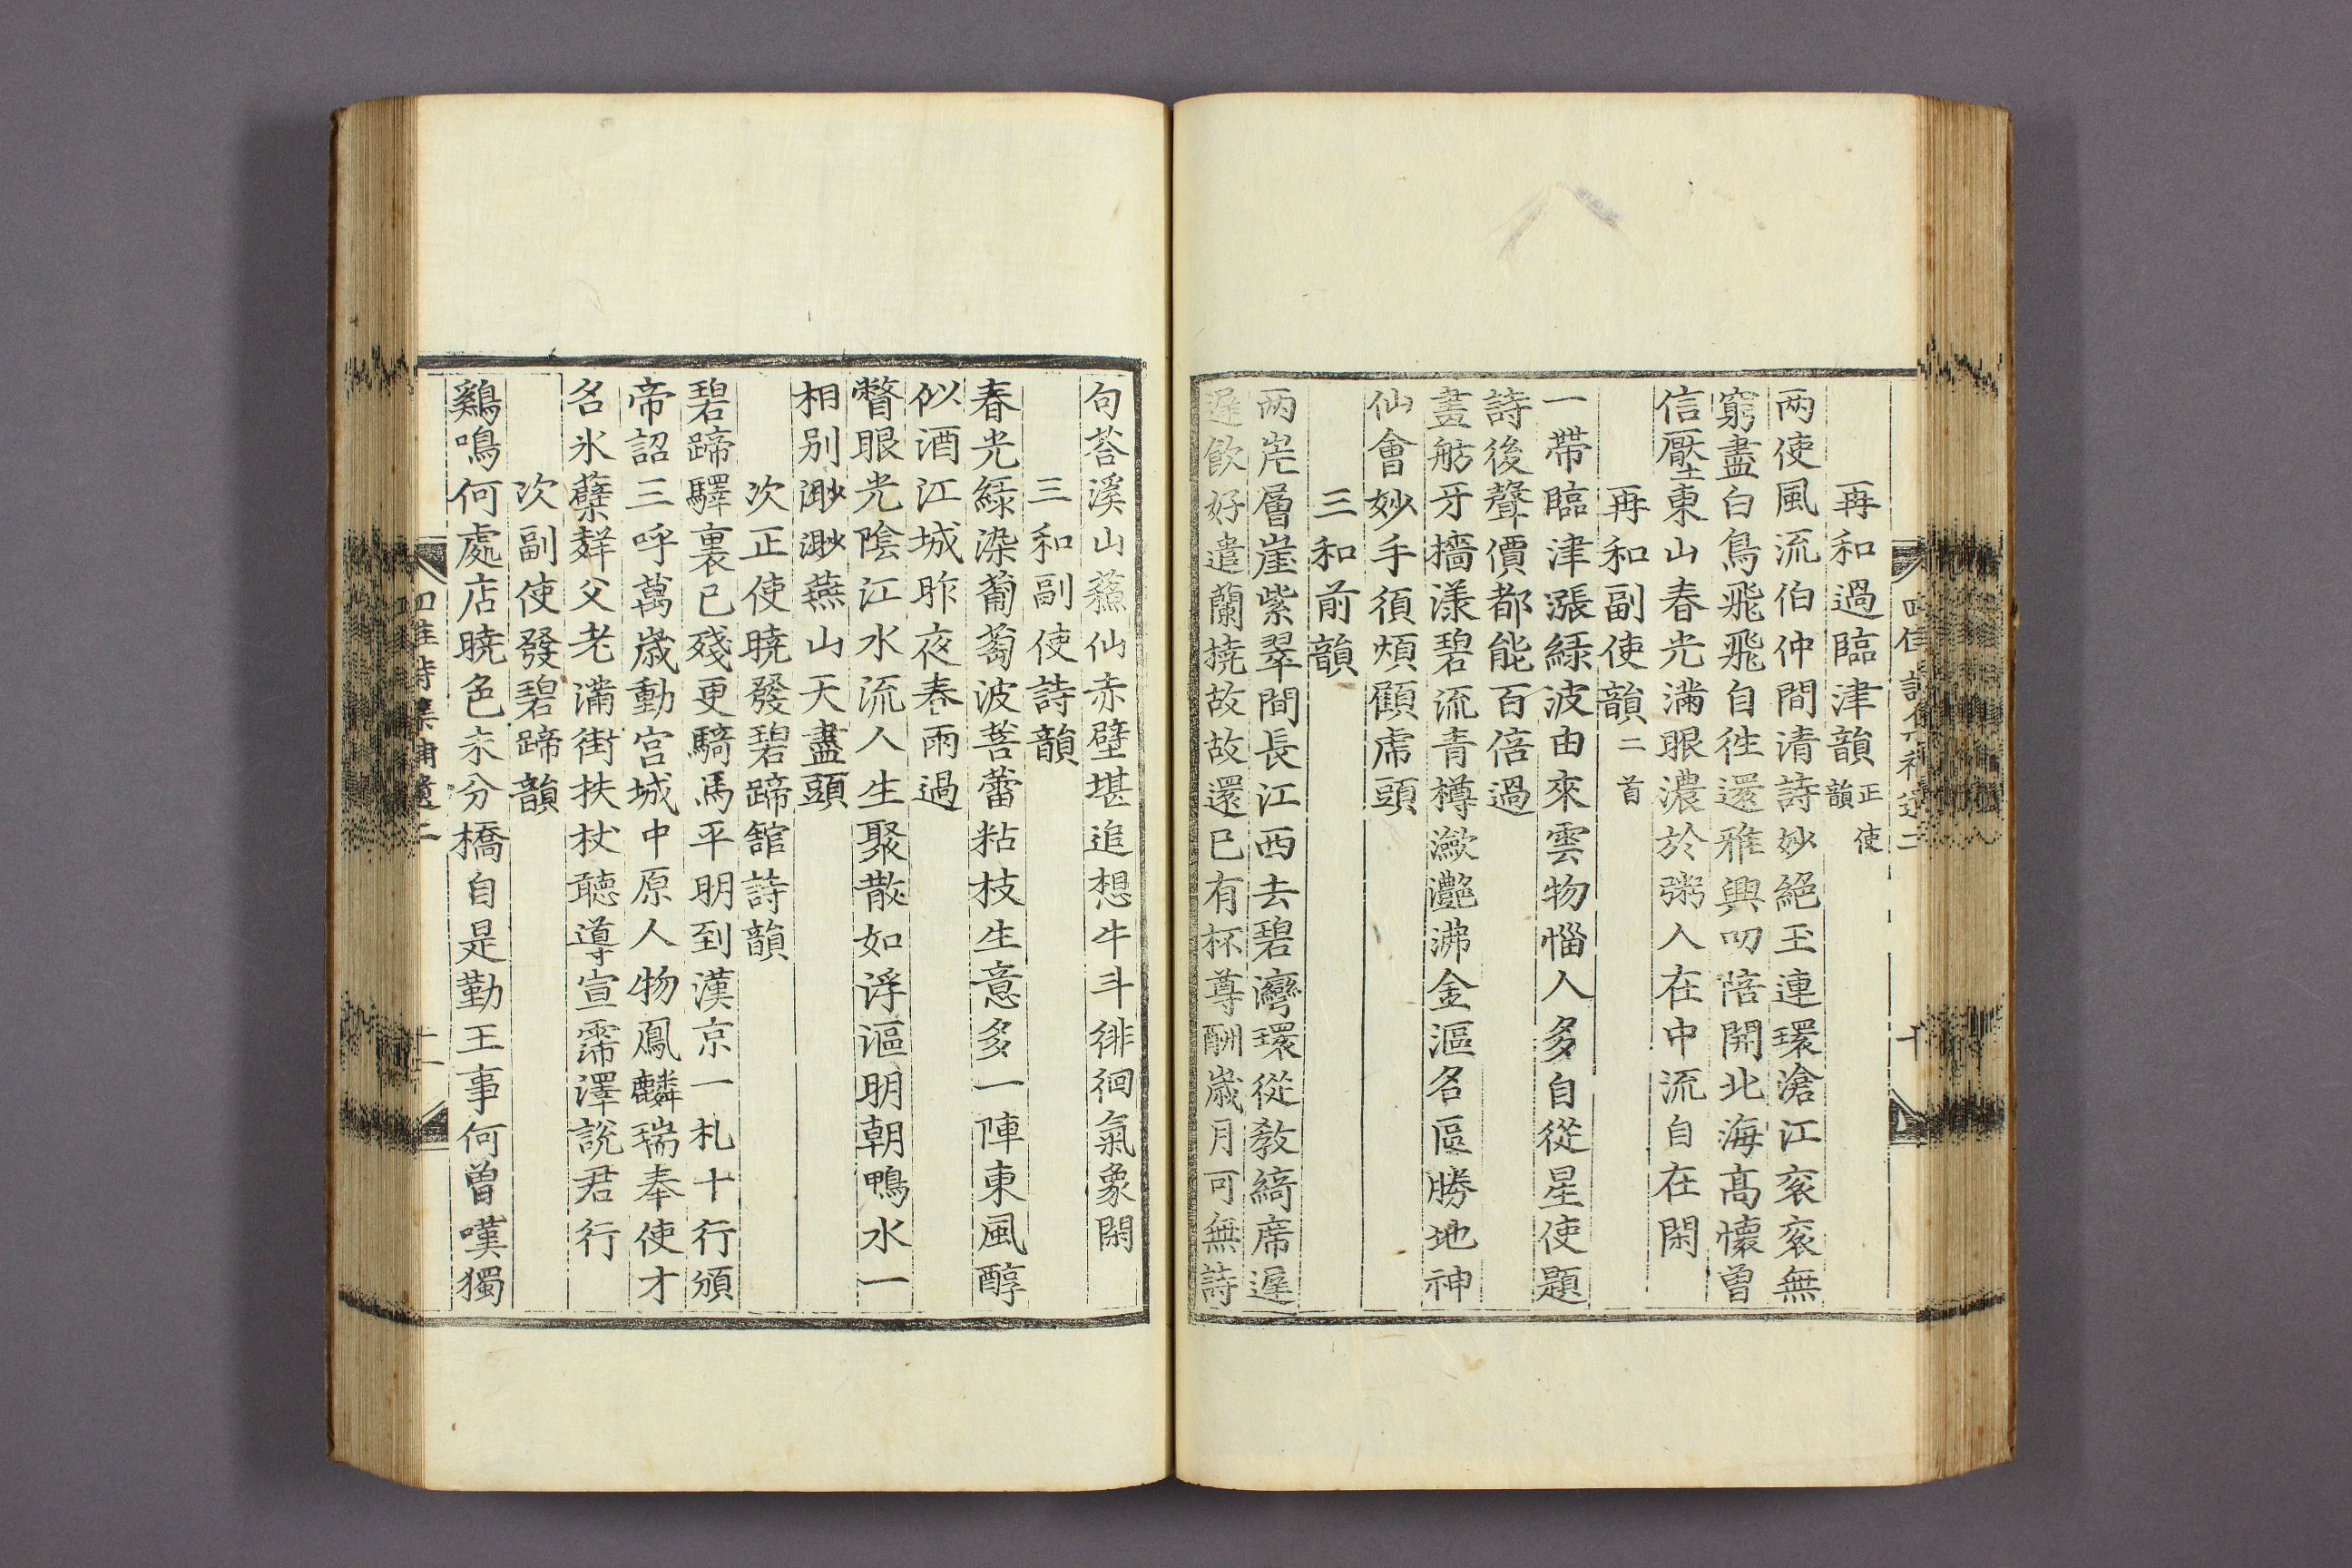 再和過臨津韻正使韻
兩使風流伯仲間清詩妙絕玉連環滄江袞袞無
窮盡白鳥飛飛自徃還雅興叨陪開北海高懷曾
信壓東山春光滿眼濃於粥人在中流自在閑
再和副使韻二首
一帶臨津漲綠波由來雲物惱人多自從星使題
詩後聲價都能百倍過
畫舫牙檣漾碧流青樽瀲灧沸金漚名區勝地神
仙會妙手須煩顧虎頭
三和前韻
兩岸層崖紫翠間長江西去碧灣環從教綺席遲
遲飮好遣蘭撓故故還已有杯尊酬歲月可無詩
句荅溪山蘓仙赤壁堪追想牛斗徘徊氣象閑
三和副使詩韻
春光綠染蔔萄波菩蕾粘枝生意多一陣東風醇
似酒江城昨夜春雨過
瞥眼光陰江水流人生聚散如浮漚明朝鴨水一
相別渺渺燕山天盡頭
次正使曉發碧蹄舘詩韻
碧蹄驛裏已殘更騎馬平明到漢京一札十行頒
帝詔三呼萬歲動宮城中原人物鳳麟瑞奉使才
名氷蘗群父老滿街扶杖聽導宣霈澤說君行
次副使發碧蹄韻
鷄鳴何處店曉色未分橋自是勤王事何曾嘆獨
四佳詩集補遺二
十一